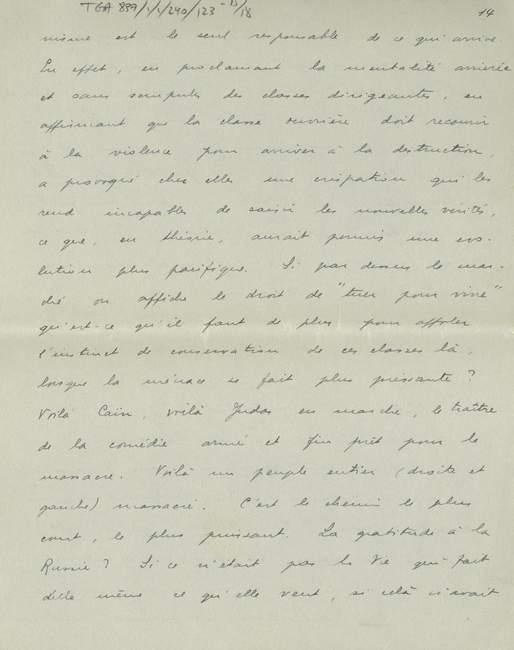 TGA 899/1/1/240/123-13/18
14
nisme est le seul responsable de ce qui arrive.
En effet, en proclamant la mentalité arriérée
et sans scrupules des classes dirigeantes, en
affirmant que la classe ouvrière doit recourir
à la violence pour arriver à la destruction,
a provoqué chez elles une crispation qui les
rend incapables de saisir les nouvelles vérités,
ce que, en théorie, aurait permis une évo-
lution plus pacifique. Si par dessus le mar-
ché on affiche le droit de "tuer pour vivre"
qu'est-ce qu'il faut de plus pour affoler
l'instinct de conservation de ces classes là,
lorsque la ménace se fait plus pressante?
Voilà Caïn, voilà Judas en marche, le traître
de la comédie armé et fin prêt pour le
massacre. Voilà un peuple entier (droite et
gauche) massacré. C'est le chemin le plus
court, le plus puissant. La gratitude à la
Russie? Si ce n'était pas la Vie qui fait
d'elle même ce qu'elle veut, si celà n'avait